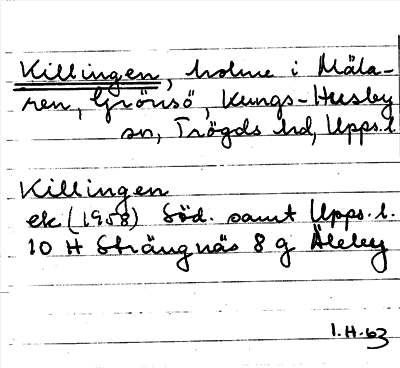 Killingen, holme i Mäla-
ren, Grönsö, Kungs-Husby
sn, Trögds hd, Upps. l.
Killingen
ek (1958) Söd. samt Upps. l.
10 H Strängnäs 8 g Äleby
I.H.63